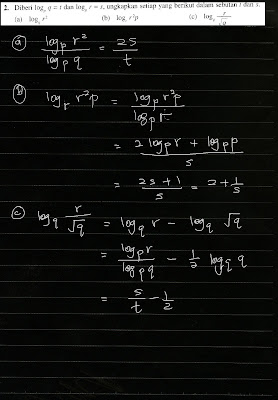 2. Diberi log_p q = t dan log_p r = s, ungkapkan setiap yang berikut dalam sebutan t dan s.
(a) log_q r² (b) log_r r²p (c) log_q r/√q
(a) log_p r² / log_p q = 2s / t
(b) log_r r²p = log_p r²p / log_p r
= 2 log_p r + log_p p / s
= 2s + 1 / s = 2 + 1/s
(c) log_q r/√q = log_q r - log_q √q
= log_p r / log_p q - 1/2 log_q q
= s/t - 1/2